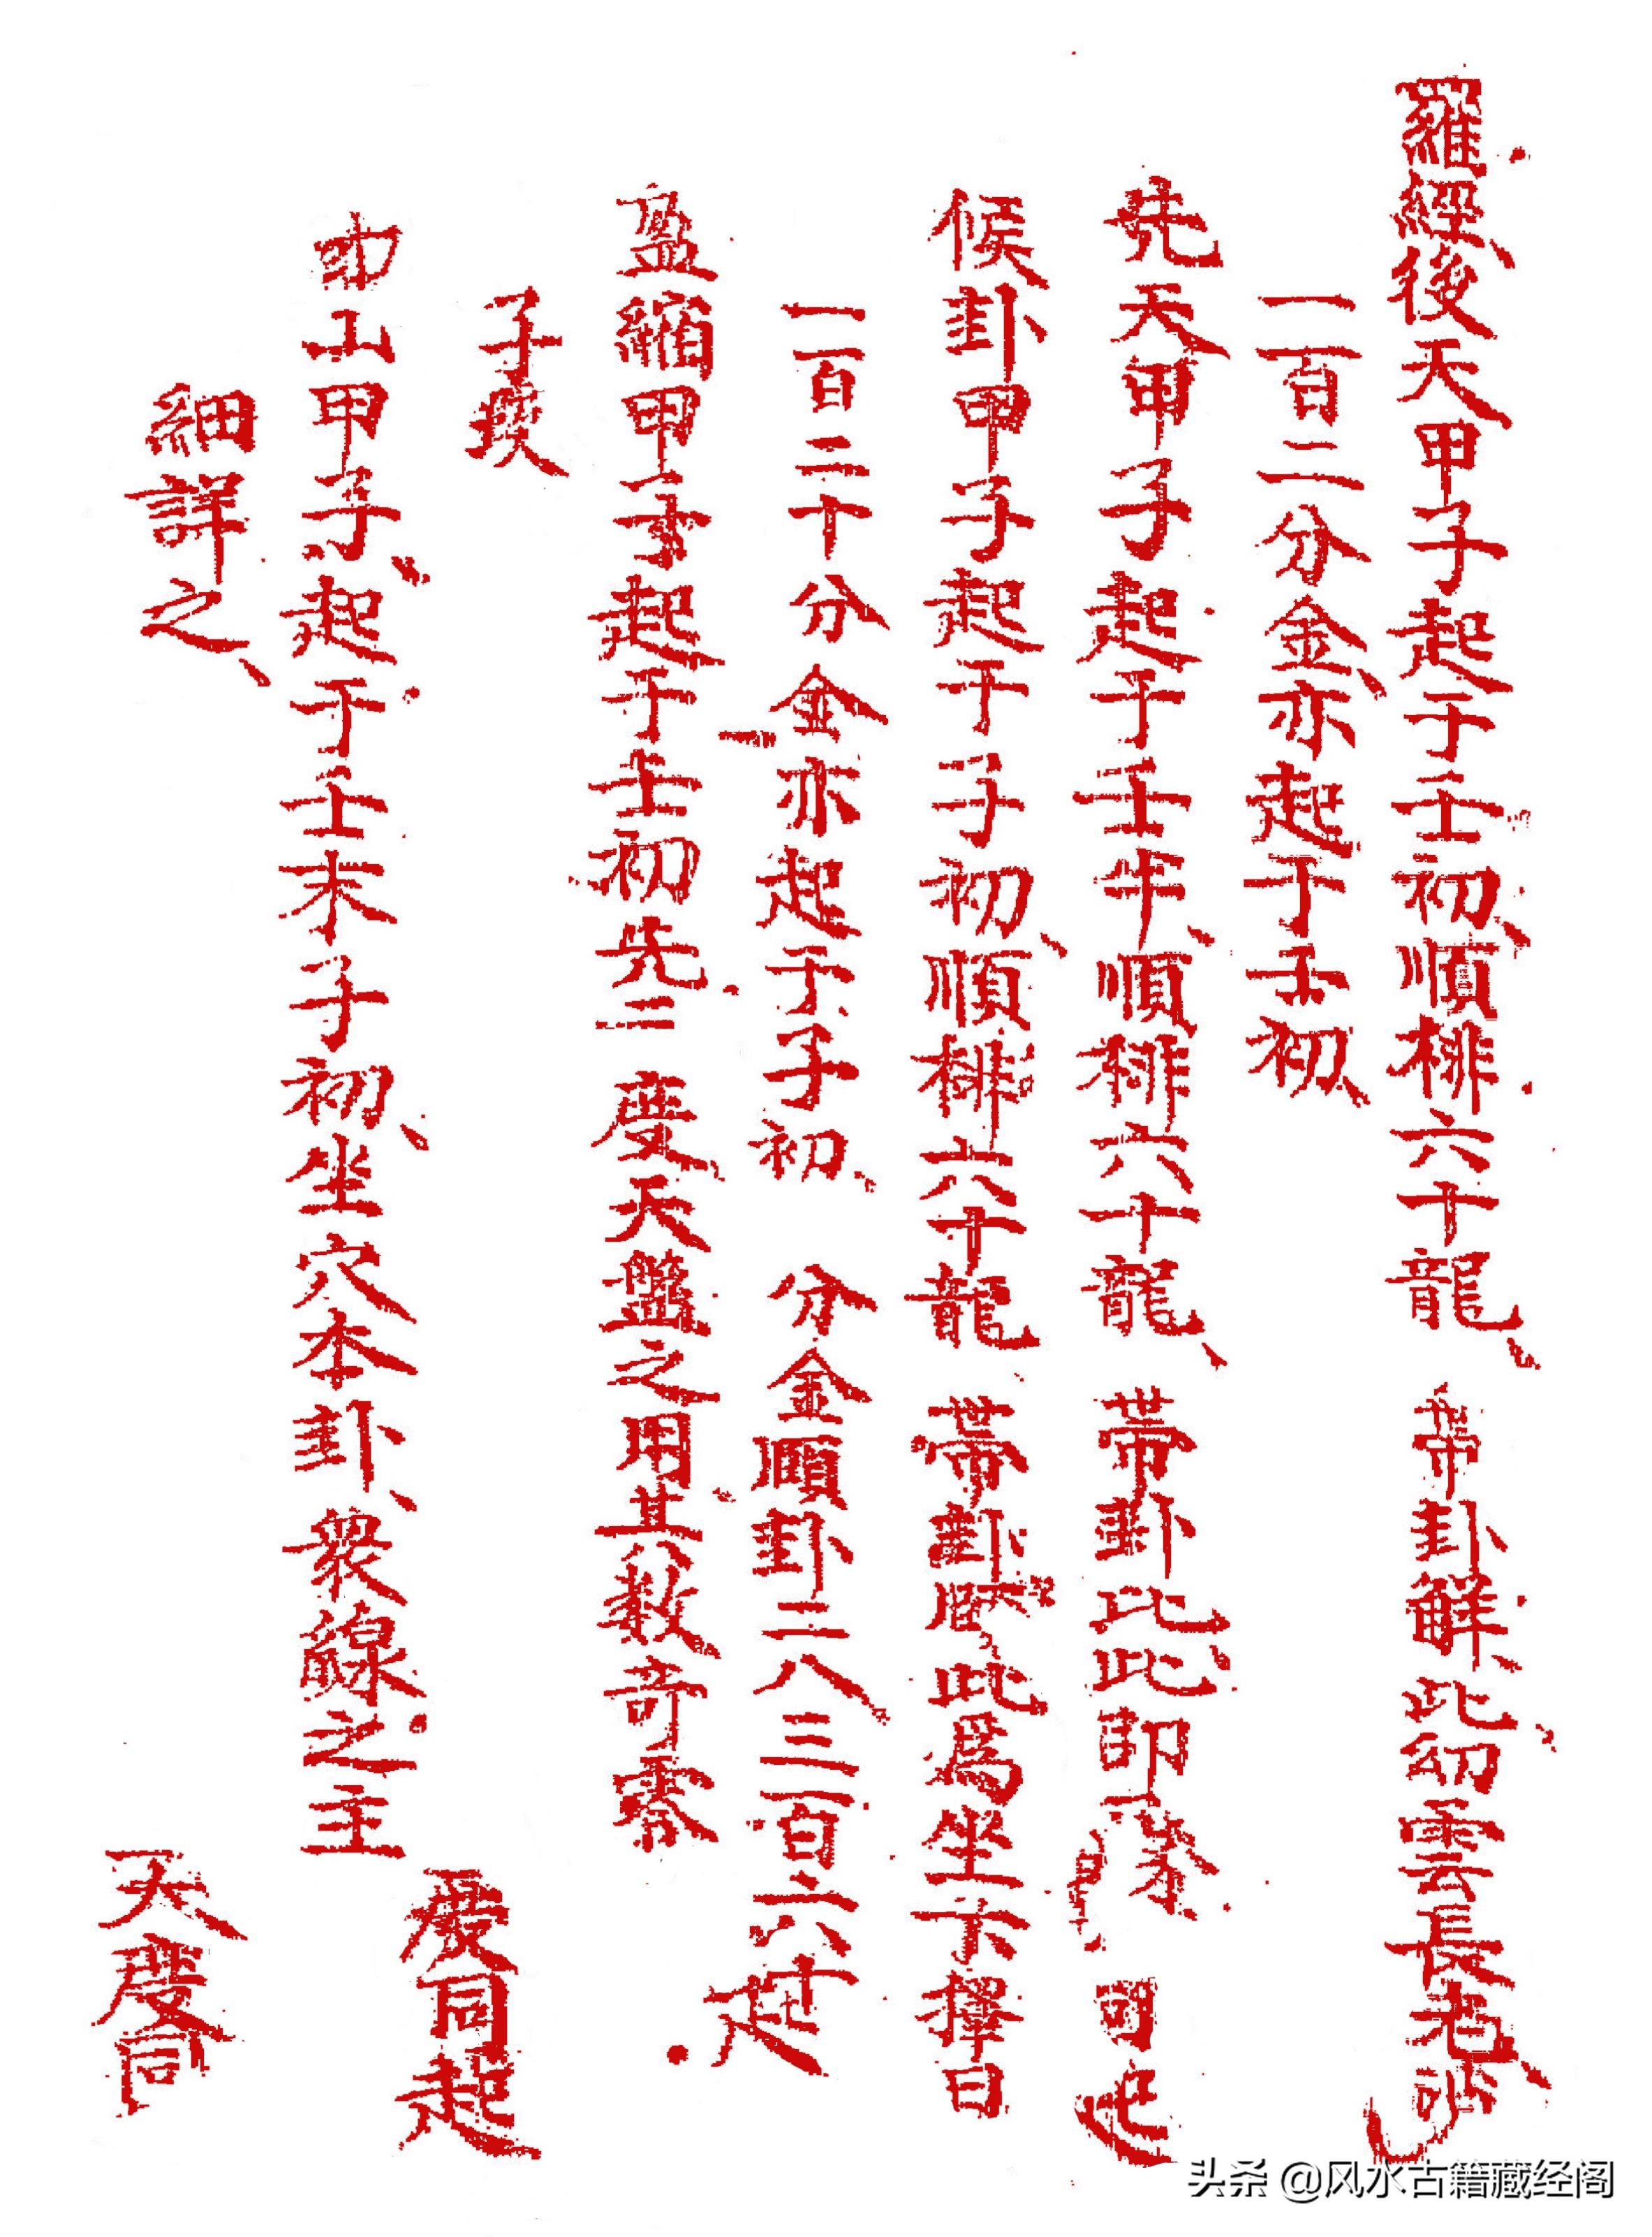 羅經後天甲子起于壬初順排六十龍帶卦解此幻雲長老
一百二分金亦起于壬初
先天甲子起于壬半順排六十龍帶卦比此即 司也
候卦甲子起于子初順排六十龍帶卦 此爲坐下擇日
一百二十分金亦起于子初 分金頤卦二八三百六十起
盈縮甲子起于壬初先二度天盤之用其數奇零
子癸
度同起
山甲子起于壬末子初坐穴本卦眾線之主
細詳之
天度同
头条 @风水古籍藏经阁